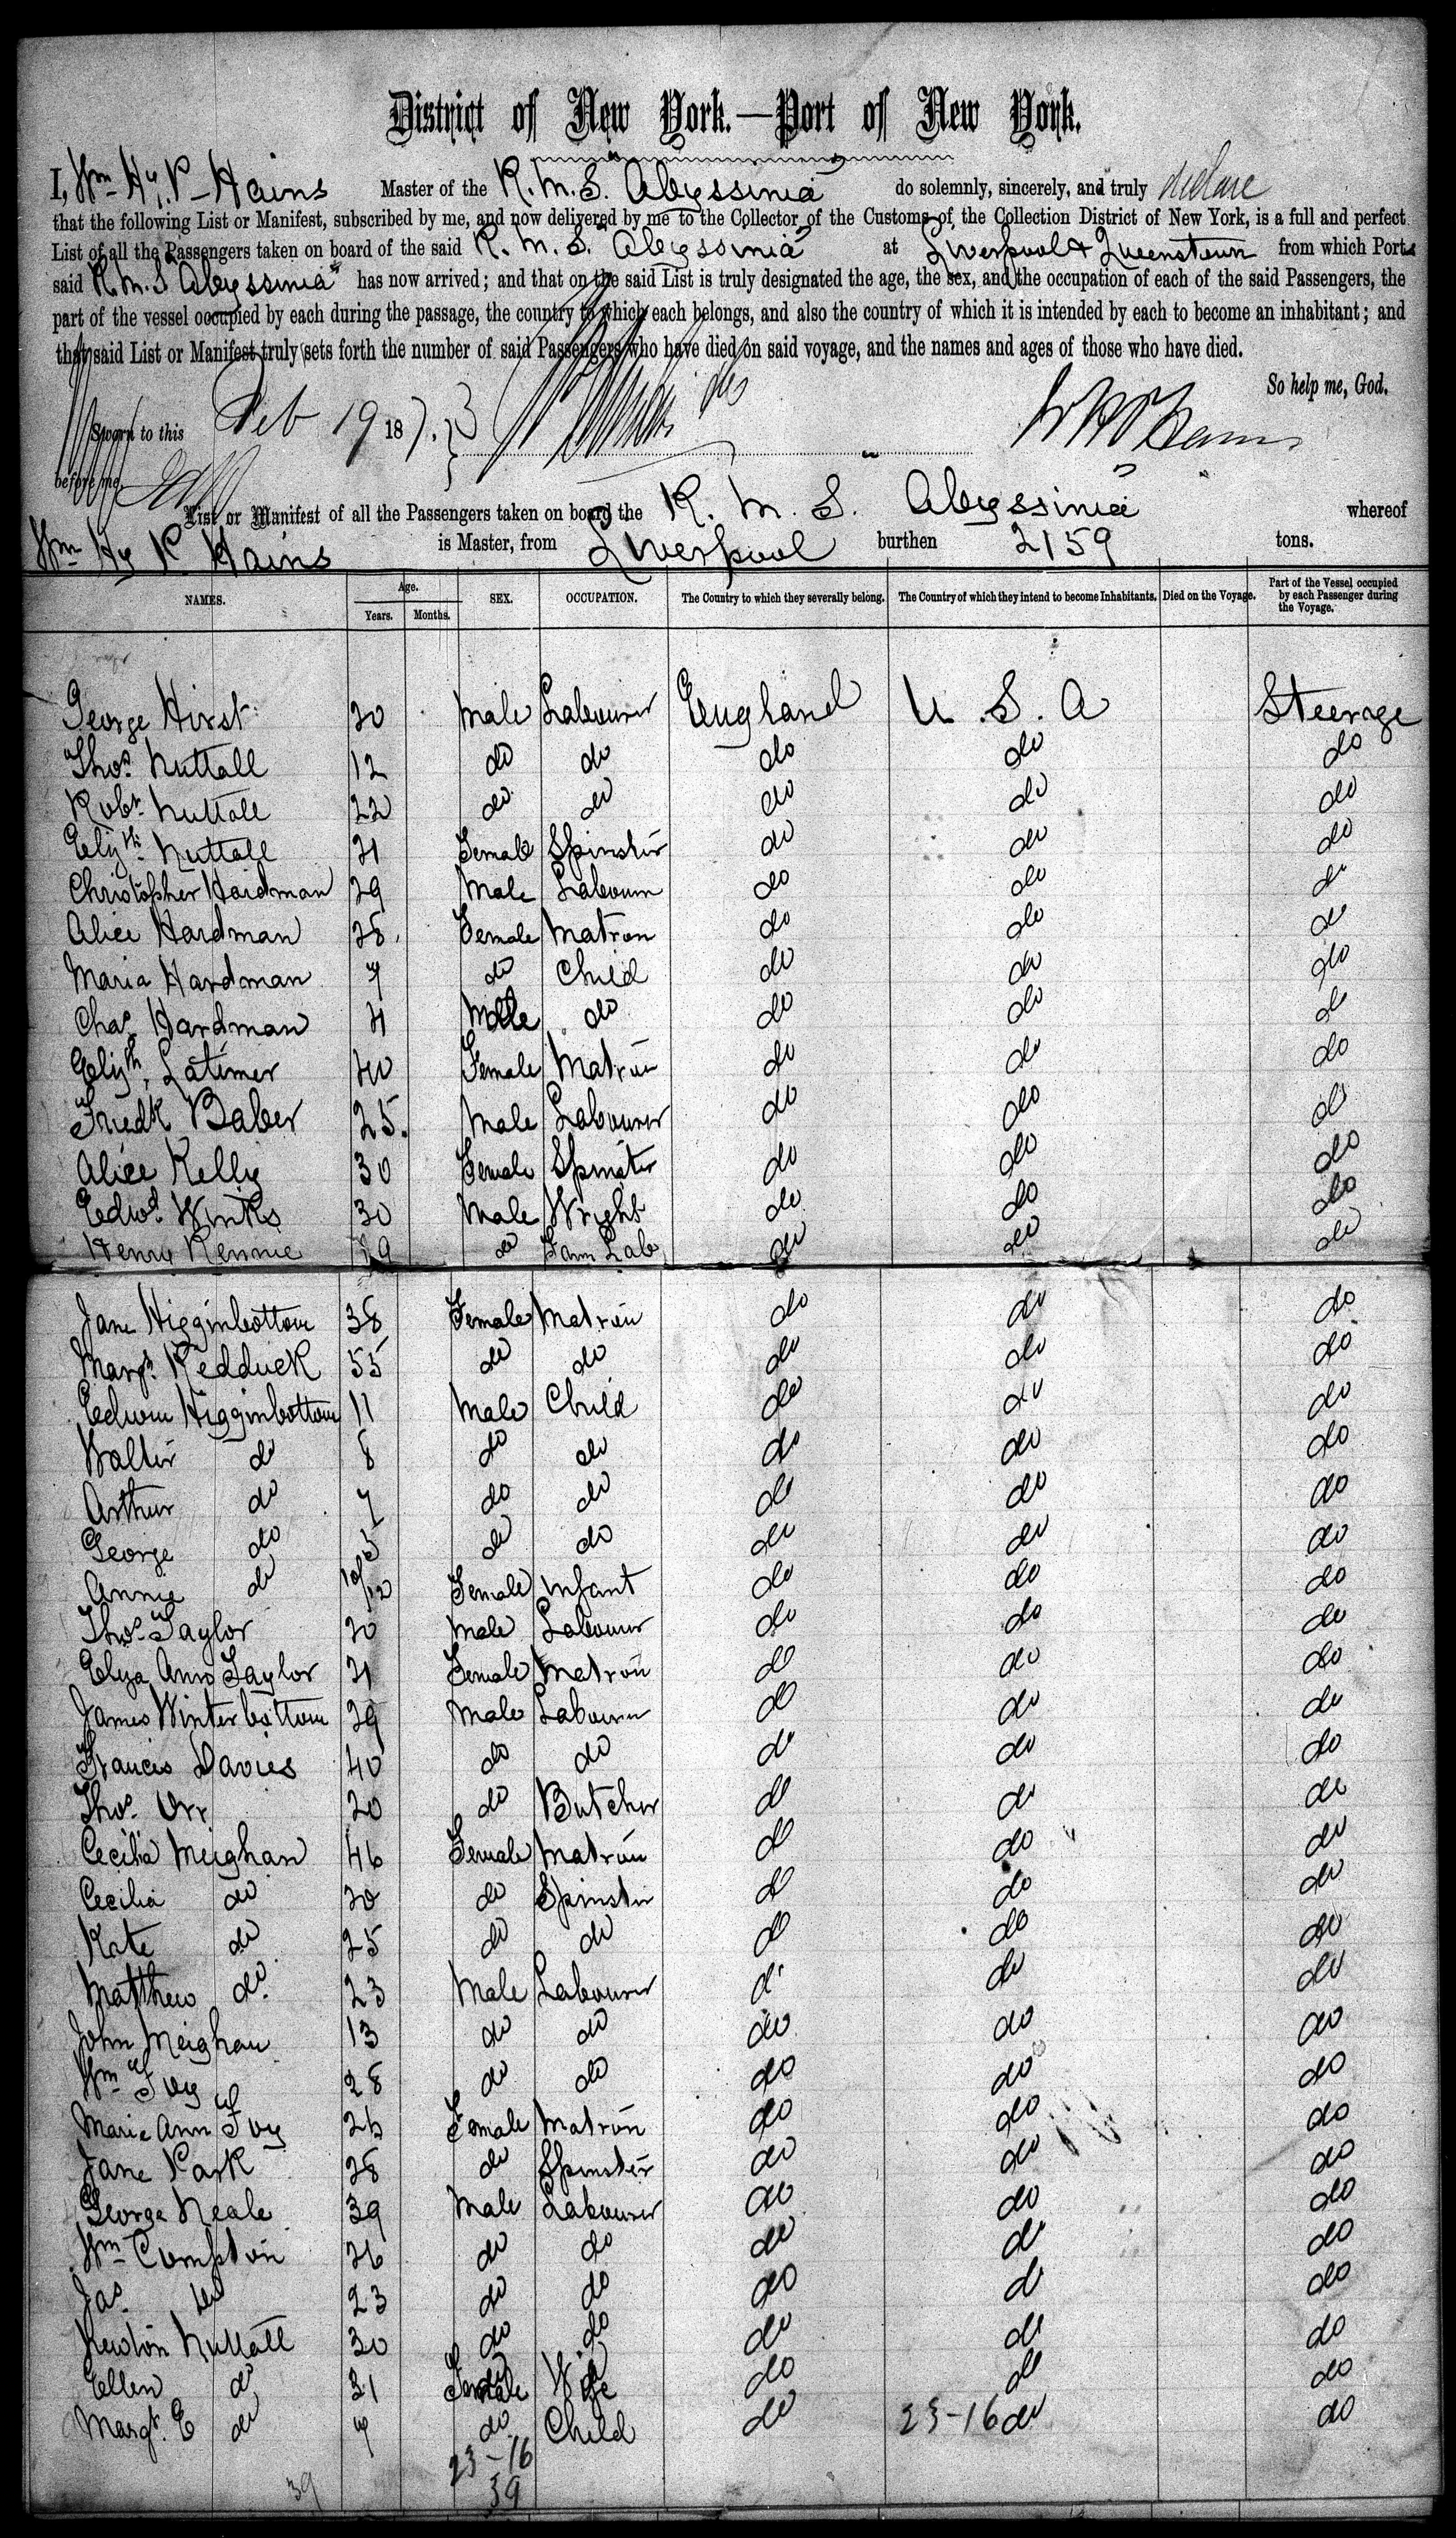 District of New York.—Port of New York.
I, Wm Hy. P. Hains Master of the R.M.S. "Abyssinia" do solemnly, sincerely, and truly declare
that the following List or Manifest, subscribed by me, and now delivered by me to the Collector of the Customs of the Collection District of New York, is a full and perfect
List of all the Passengers taken on board of the said R.M.S. "Abyssinia" at Liverpool & Queenstown from which Ports
said R.M.S "Abyssinia" has now arrived; and that on the said List is truly designated the age, the sex, and the occupation of each of the said Passengers, the
part of the vessel occupied by each during the passage, the country to which each belongs, and also the country of which it is intended by each to become an inhabitant; and
that said List or Manifest truly sets forth the number of said Passengers who have died on said voyage, and the names and ages of those who have died.
So help me, God.
Sworn to this Feb 19 187. W H P Hains
before me,
List or Manifest of all the Passengers taken on board the R. M. S. Abyssinia" whereof
Wm Hy P Hains is Master, from Liverpool burthen 2159 tons.
NAMES. Age. Years. Months. SEX. OCCUPATION. The Country to which they severally belong. The Country of which they intend to become Inhabitants. Died on the Voyage. Part of the Vessel occupied by each Passenger during the Voyage.
George Hirst 20 Male Labourer England U.S.A Steerage
Thos. Nuttall 12 do do do do do
Robt. Nuttall 22 do do do do do
Elizth. Nuttall 21 Female Spinster do do do
Christopher Hardman 29 Male Labourer do do do
Alice Hardman 28 Female Matron do do do
Maria Hardman 7 do Child do do do
Chas Hardman 4 Male do do do do
Elizth. Latimer 40 Female Matron do do do
Fredk Baber 25. Male Labourer do do do
Alice Kelly 30 Female Spinster do do do
Edwd. Winks 30 Male Wright do do do
Henry Rennie 19 do Farm Lab do do do
Jane Higginbottom 38 Female Matron do do do
Margt. Redduck 55 do do do do do
Edwin Higginbottom 11 Male Child do do do
Walter do 8 do do do do do
Arthur do 7 do do do do do
George do 5 do do do do do
Annie do 10/12 Female Infant do do do
Thos. Taylor 20 Male Labourer do do do
Eliza Ann Taylor 21 Female Matron do do do
James Winterbottom 29 Male Labourer do do do
Francis Davies 40 do do do do do
Thos. Orr 20 do Butcher do do do
Cecilia Meighan 46 Female Matron do do do
Cecilia do 20 do Spinster do do do
Kate do 25 do do do do do
Matthew do. 23 Male Labourer do do do
John Meighan 13 do do do do do
Wm Ivy 28 do do do do do
Maria Ann Ivy 26 Female Matron do do do
Jane Park 28 do Spinster do do do
George Neale 39 Male Labourer do do do
Wm Compston 26 do do do do do
Jas. do 23 do do do do do
Newton Nuttall 30 do do do do do
Ellen do 31 Female Wife do do do
Margt. E do 7 do Child do 23-16 do do
23-16
39 39